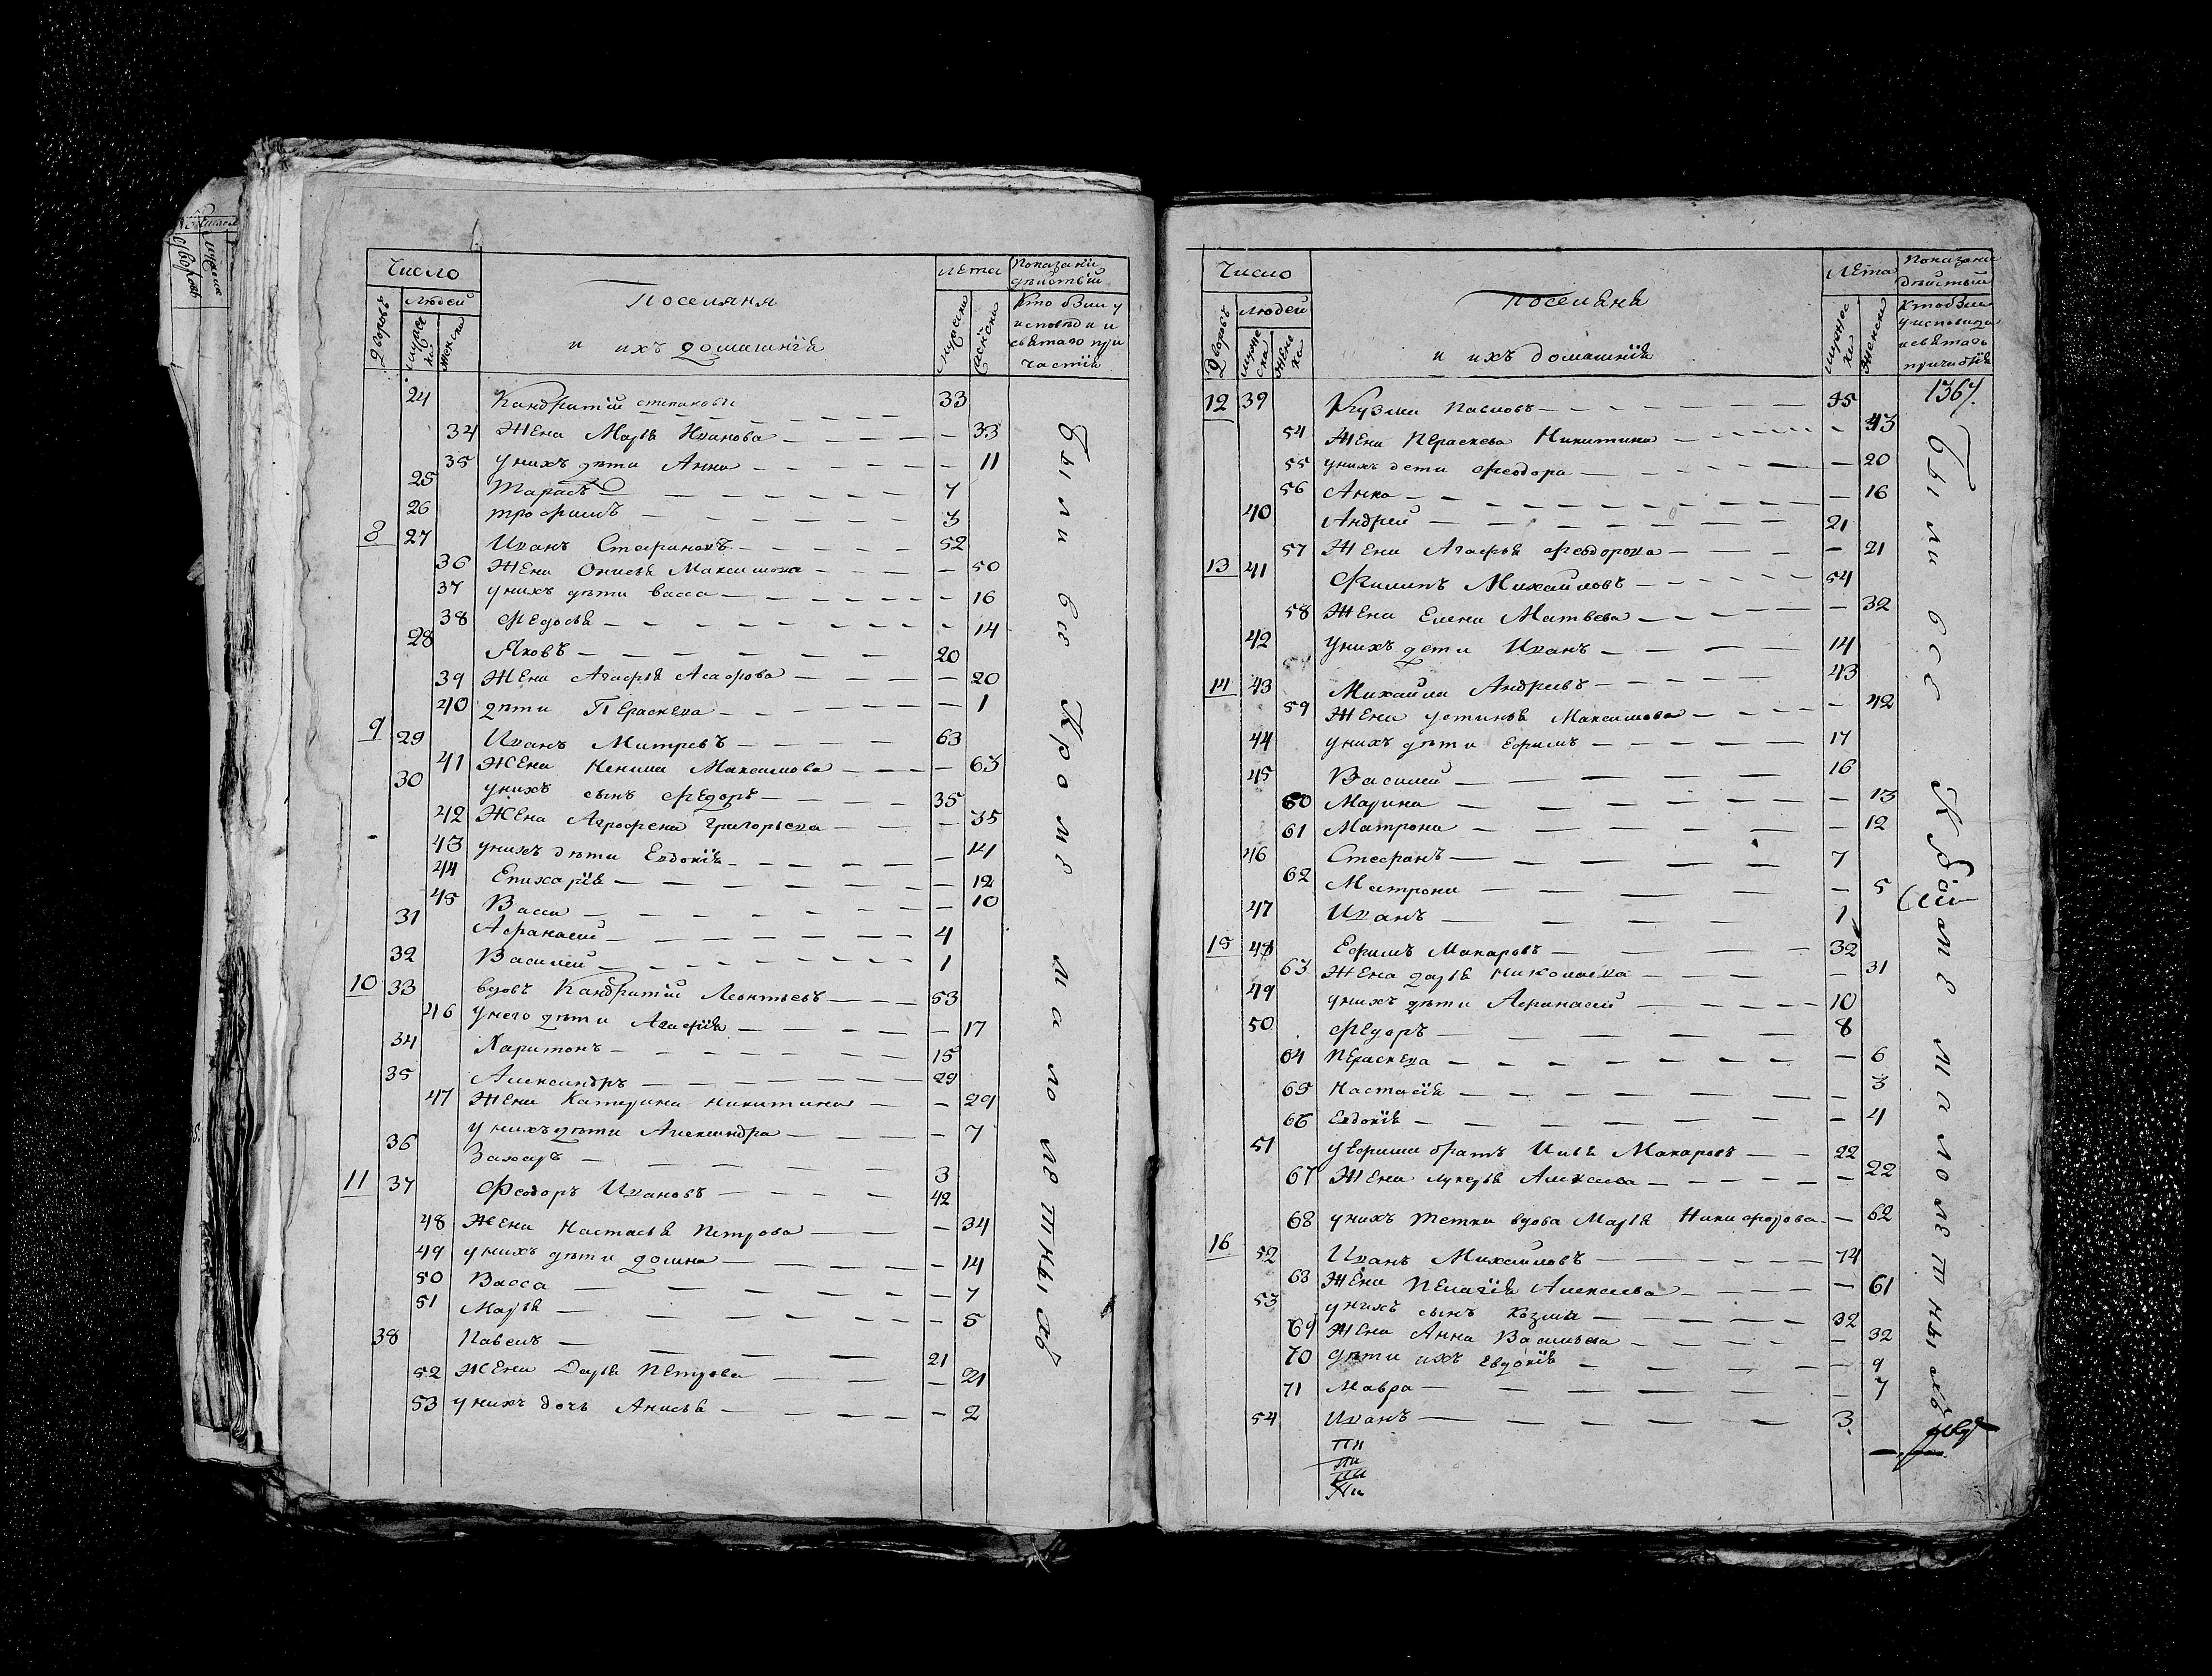 Число
Поселяня
Лета
Показани дѣиствий
Дворовъ
людей
мужеска
женска
и ихъ домашнїя
мужески
женски
Кто были у исповѣди и святаго причастїя
24 Кандратий степановъ 33
34 Жена Марiя Иванова — 33
35 унихъ дѣти Анна — 11
25 Тарасъ 7
26 трофимъ 3
8 27 Иванъ Стефановъ 52
36 Жена Онисья Максимова — 50
37 унихъ дѣти васса — 16
38 Федосья — 14
28 Яковъ 20
39 Жена Агафья Асафова — 20
40 дѣти Пераскева — 1
9 29 Иванъ Митревъ 63
41 Жена Ксенина Максимова — 63
30 унихъ сынъ Федоръ 35
42 Жена Агрофена Григорьева — 35
43 унихъ дѣти Евдокїя — 14
44 Епихарїя — 12
45 Васса — 10
31 Афанасий 4
32 Василей 1
10 33 вдовъ Кандратий Леонтьевъ 53
46 унего дѣти Агафїя — 17
34 Харитонъ 15
35 Александръ 29
47 Жена Катерина никитина — 29
унихъ дѣти Александра — 7
36 Захаръ 3
11 37 Феодоръ Ивановъ 42
48 Жена Настасья Петрова — 34
49 унихъ дѣти домна — 14
50 Васса — 7
51 Марья — 5
38 Павелъ 21
52 Жена Дарья Петрова — 21
53 унихъ дочь Анисья — 2
Были все Кроме малолетныхъ
Число
Поселяня
Лета
Показани дѣистъий
Дворовъ
людей
мужеска
женска
и ихъ домашнїя
мужески
женски
Кто были у исповиди и святаго причастїя
1367.
12 39 Кузма павловъ 45
54 Жена Пераскева Никитина — 43
55 унихъ дети феодора — 20
56 Анна — 16
40 Андрей 21
57 Жена Агафья феодорова — 21
13 41 Филипъ Михайловъ 54
58 Жена Елена Матвева — 32
42 унихъ дети Иванъ 14
14 43 Михайла Андревъ 43
59 Жена устинья Максимова — 42
44 унихъ дѣти Ефимъ 17
45 Василей 16
60 Марина — 13
61 Матрона — 12
46 Стефанъ 7
62 Матрона — 5
47 Иванъ 1
15 48 Ефимъ Макаровъ 32
63 Жена дарья николаева — 31
49 унихъ дѣти Афанасий 10
50 Федоръ 8
64 Пераскева — 6
65 Настасїя — 3
66 Евдокїя — 4
51 уефима братъ Илья Макаровъ 22
67 Жена лукерья Алексеева — 22
68 унихъ тетка вдова Марья Никифорова — 62
16 52 Иванъ Михайловъ 74
68 Жена Пелагїя Алексеева — 61
53 унихъ сынъ Козма 32
69 Жена Анна Васильева — 32
70 дѣти ихъ Евдокїя — 9
71 Мавра — 7
54 Иванъ 3
Были все Кроме малолетныхъ